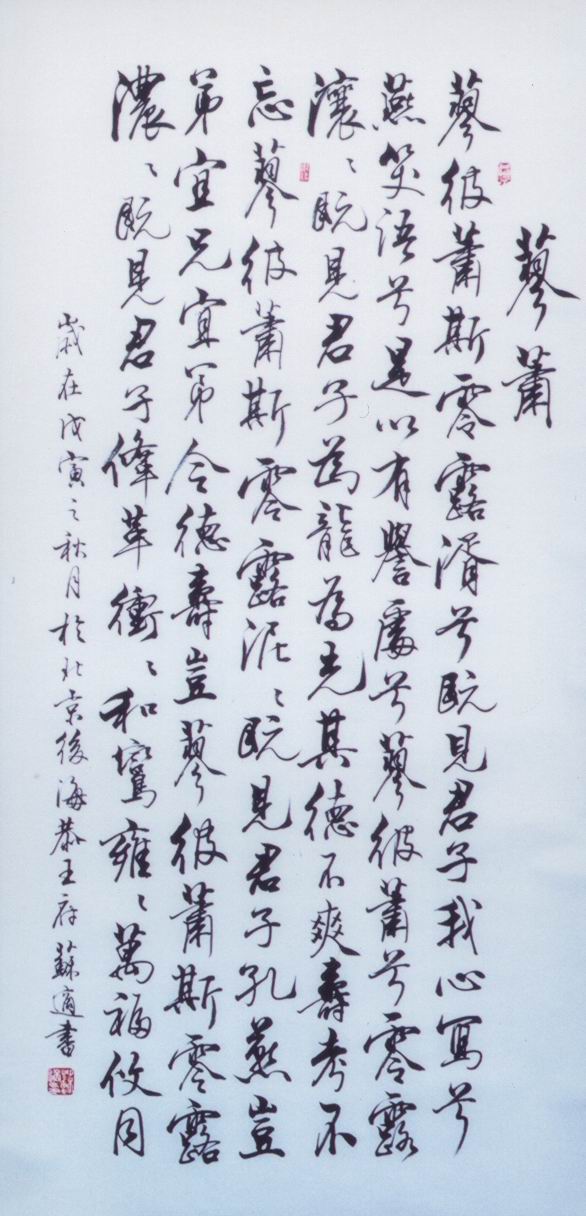 蓼蕭
蓼彼蕭斯零露湑兮既見君子我心寫兮
燕笑語兮是以有譽處兮蓼彼蕭兮零露
瀼〻既見君子為龍為光其德不爽壽考不
忘蓼彼蕭斯零露泥〻既見君子孔燕豈
弟宜兄宜弟令德壽豈蓼彼蕭斯零露
濃〻既見君子鞗革衝〻和鸞雍〻萬福攸同
歲在戊寅之秋月於北京後海恭王府蘇適書